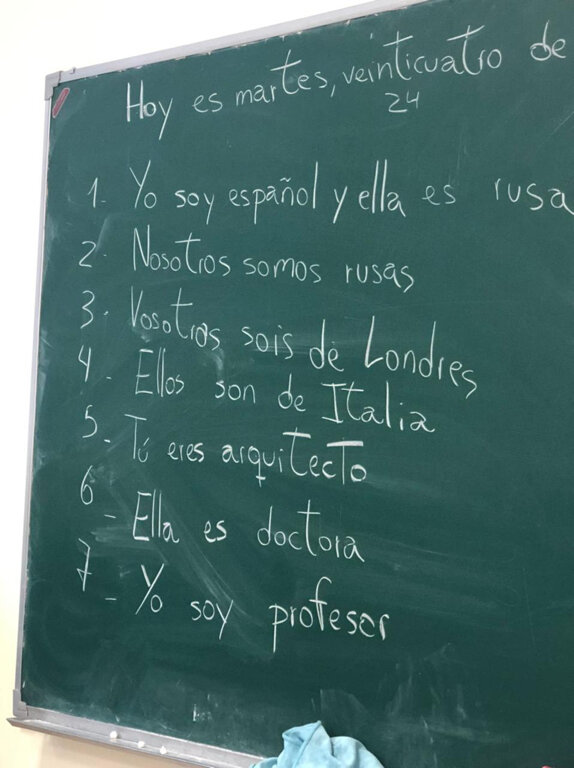 Hoy es martes, veinticuatro de
24
1- Yo soy español y ella es rusa
2- Nosotros somos rusas
3- Vosotros sois de Londres
4- Ellos son de Italia
5- Tú eres arquitecto
6- Ella es doctora
7- Yo soy profesor